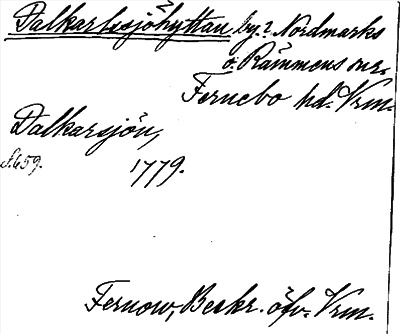 Dalkarlssjöhyttan by. i Nordmarks
o. Rämmens snr.
Fernebo hd. Vrm.
Dalkarsjön,
S. 659. 1779.
Fernow, Beskr. öfv. Vrm.